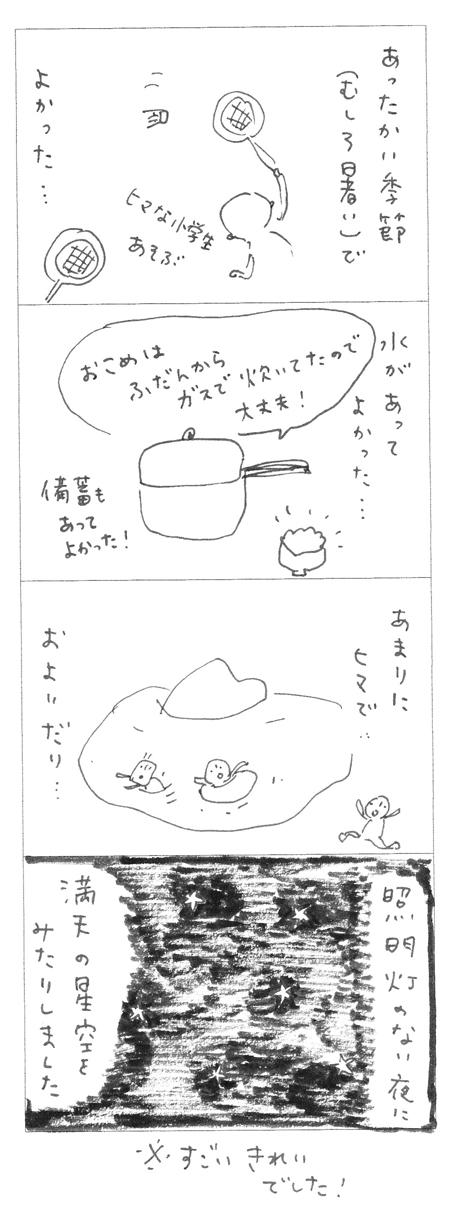 あったかい季節
(むしろ暑い)で
よかった…
ヒマな小学生
あそぶ
水があって
よかった…
おこめは
ふだんから
ガスで炊いてたので
大丈夫!
備蓄も
あって
よかった!
あまりに
ヒマで‥
およいだり…
照明灯のない夜に
満天の星空を
みたりしました
すごいきれい
でした!